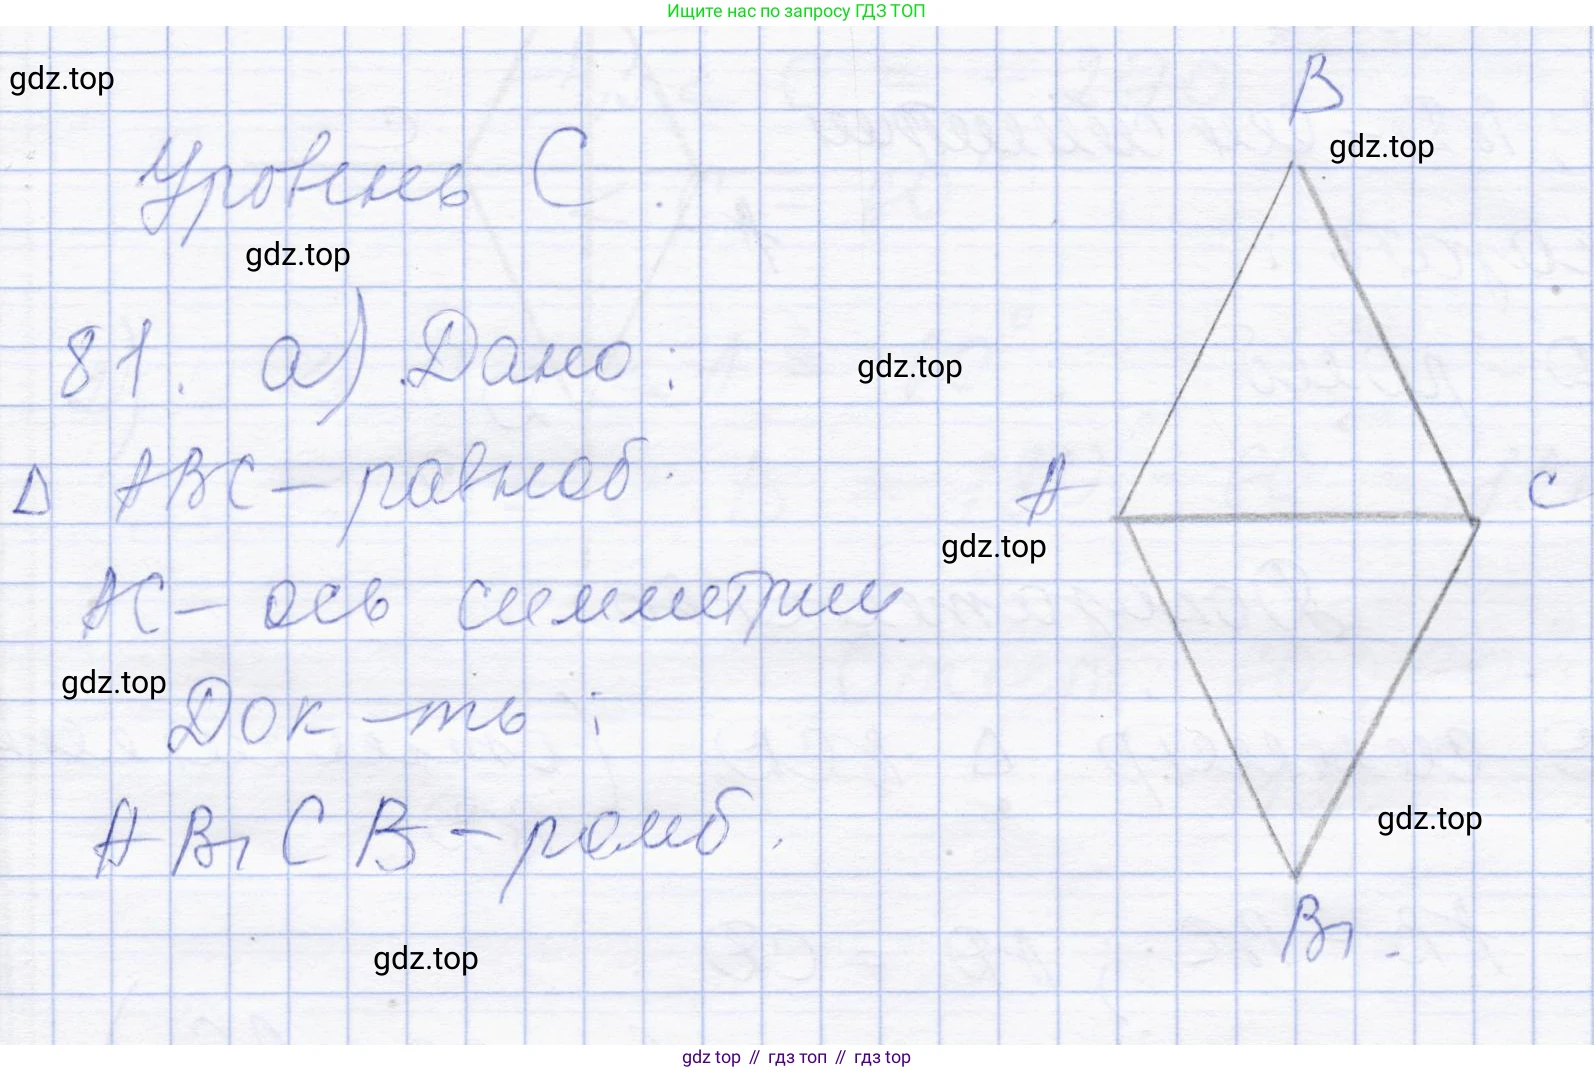 Ищите нас по запросу ГДЗ ТОП
gdz.top
B
gdz.top
Уровень C.
gdz.top
81. а) Дано:
gdz.top
Δ ABC – равноб.
A
C
gdz.top
AC – ось симметрии
gdz.top
Док-ть:
gdz.top
AB₁CB – ромб.
B₁
gdz.top
gdz top // гдз топ // гдз top